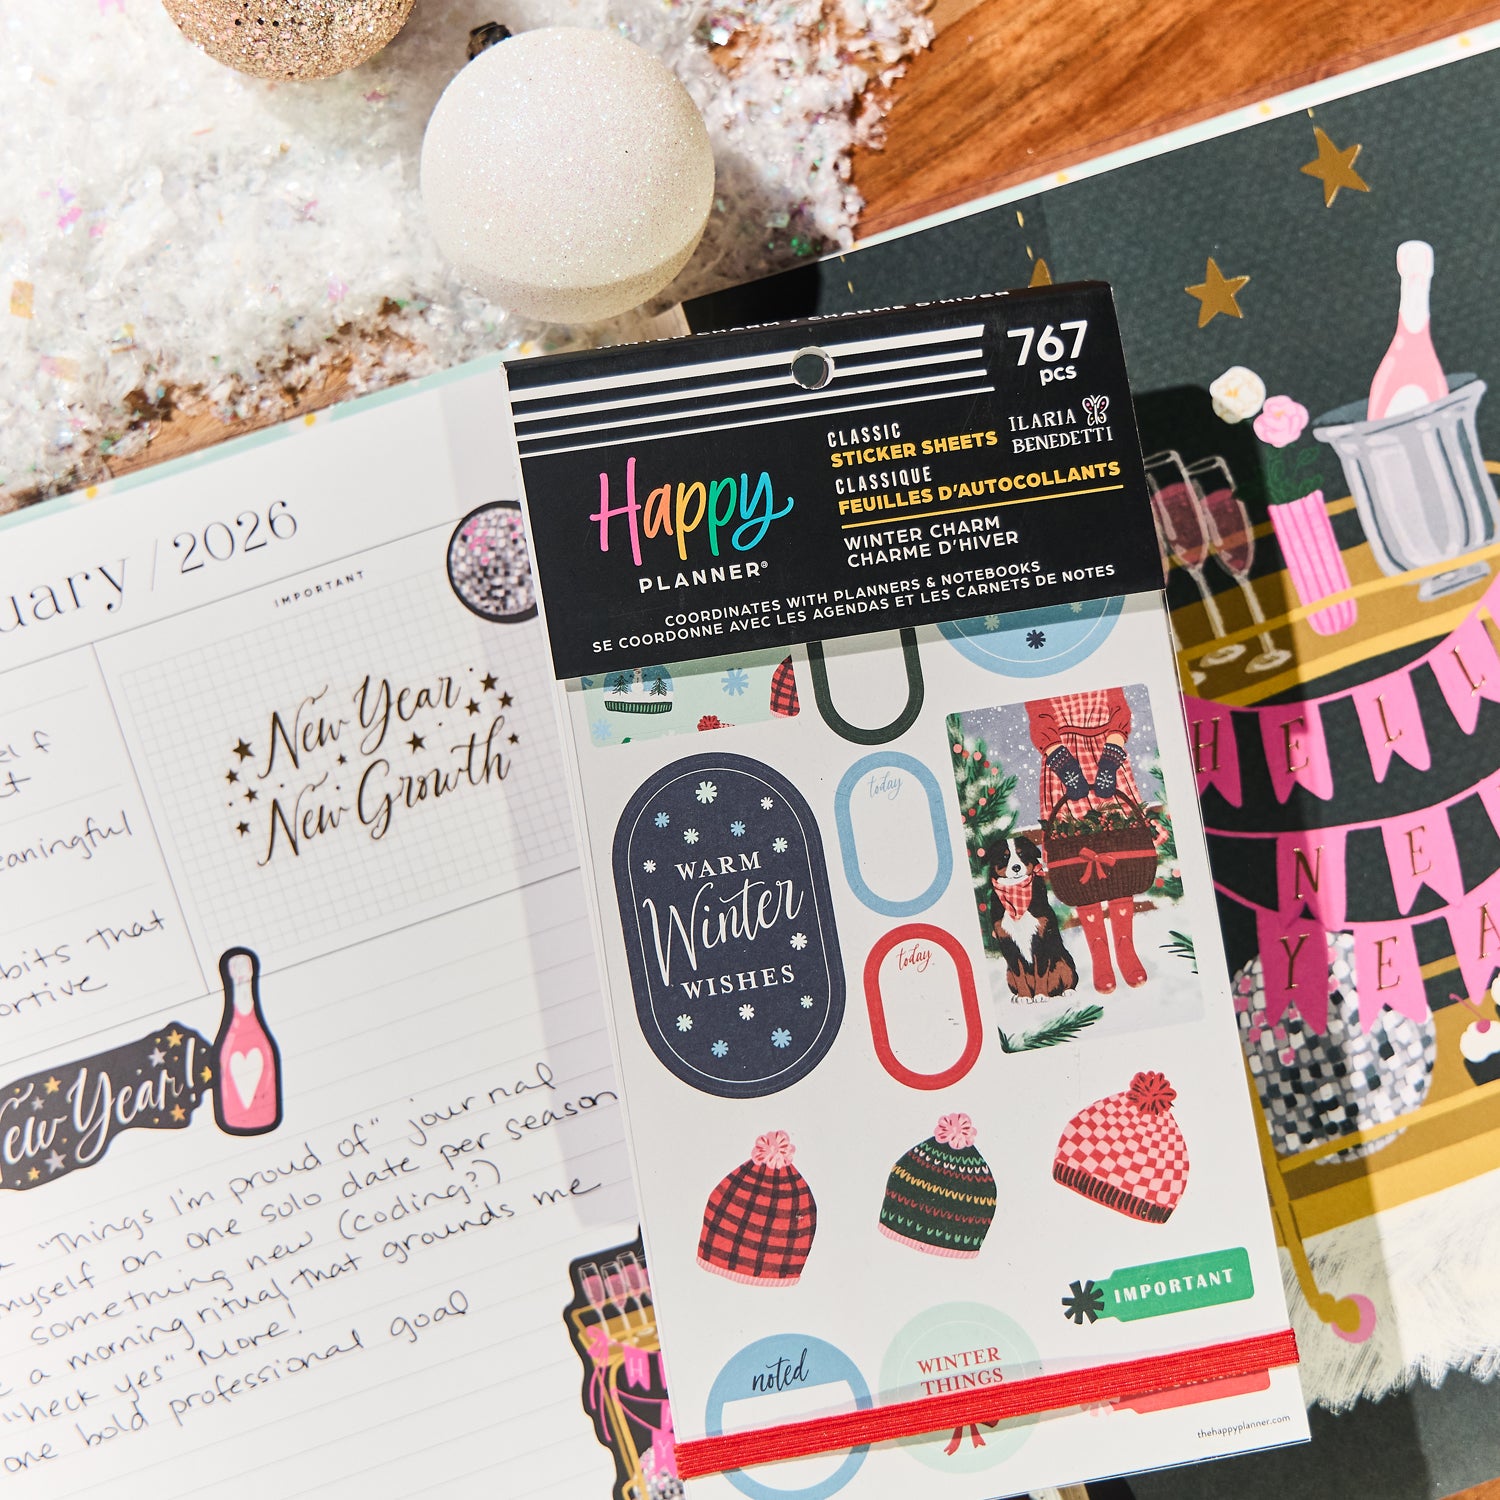 767
pcs
CLASSIC
STICKER SHEETS
ILARIA
BENEDETTI
CLASSIQUE
FEUILLES D'AUTOCOLLANTS
WINTER CHARM
CHARME D'HIVER
Happy
PLANNER®
COORDINATES WITH PLANNERS & NOTEBOOKS
SE COORDONNE AVEC LES AGENDAS ET LES CARNETS DE NOTES
WARM
Winter
WISHES
today
today
IMPORTANT
noted
WINTER
THINGS
thehappyplanner.com
/2026
IMPORTANT
New Year
New Growth
that
Year!
"Things I'm proud of" journal
myself on one solo date per season
something new (coding?)
a morning ritual that grounds me
"heck yes" More!
one bold professional goal
HELL
NE
YEA